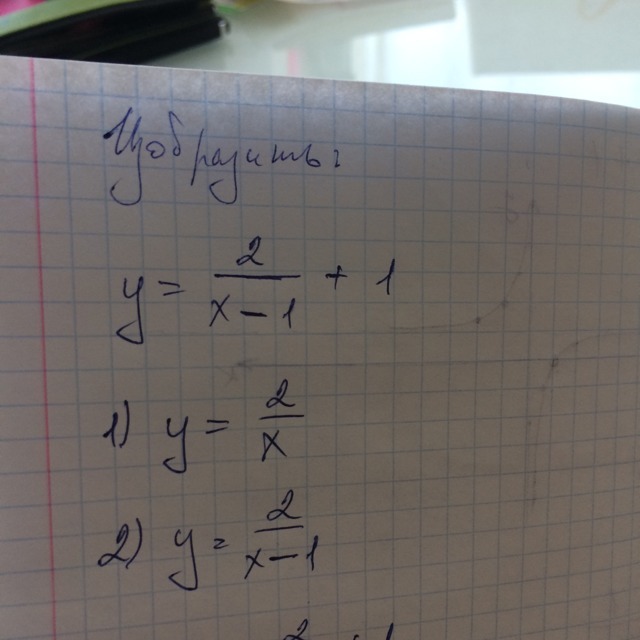 Изобразить:
y = 2/(x-1) + 1
1) y = 2/x
2) y = 2/(x-1)